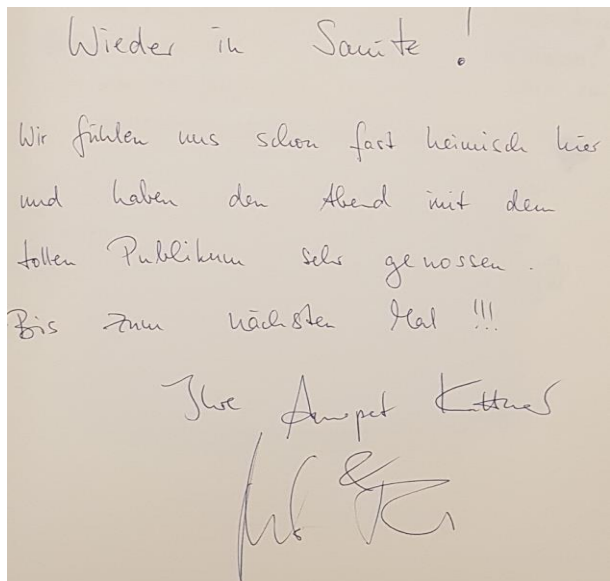 Wieder in Sanitz!
Wir fühlen uns schon fast heimisch hier
und haben den Abend mit dem
tollen Publikum sehr genossen.
Bis zum nächsten Mal !!!
Ihre Kuttner
&